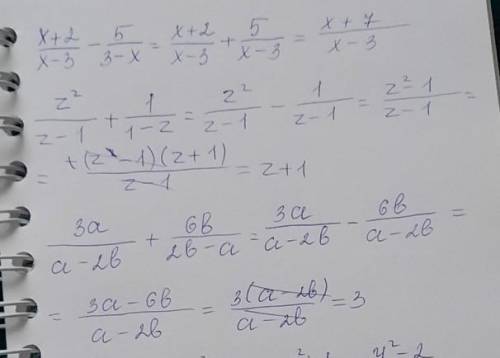 (x+2)/(x-3) - 5/(3-x) = (x+2)/(x-3) + 5/(x-3) = (x+7)/(x-3)
z²/(z-1) + 1/(1-z) = z²/(z-1) - 1/(z-1) = (z²-1)/(z-1) =
= (z-1)(z+1)/(z-1) = z+1
3a/(a-2b) + 6b/(2b-a) = 3a/(a-2b) - 6b/(a-2b) =
= (3a-6b)/(a-2b) = 3(a-2b)/(a-2b) = 3